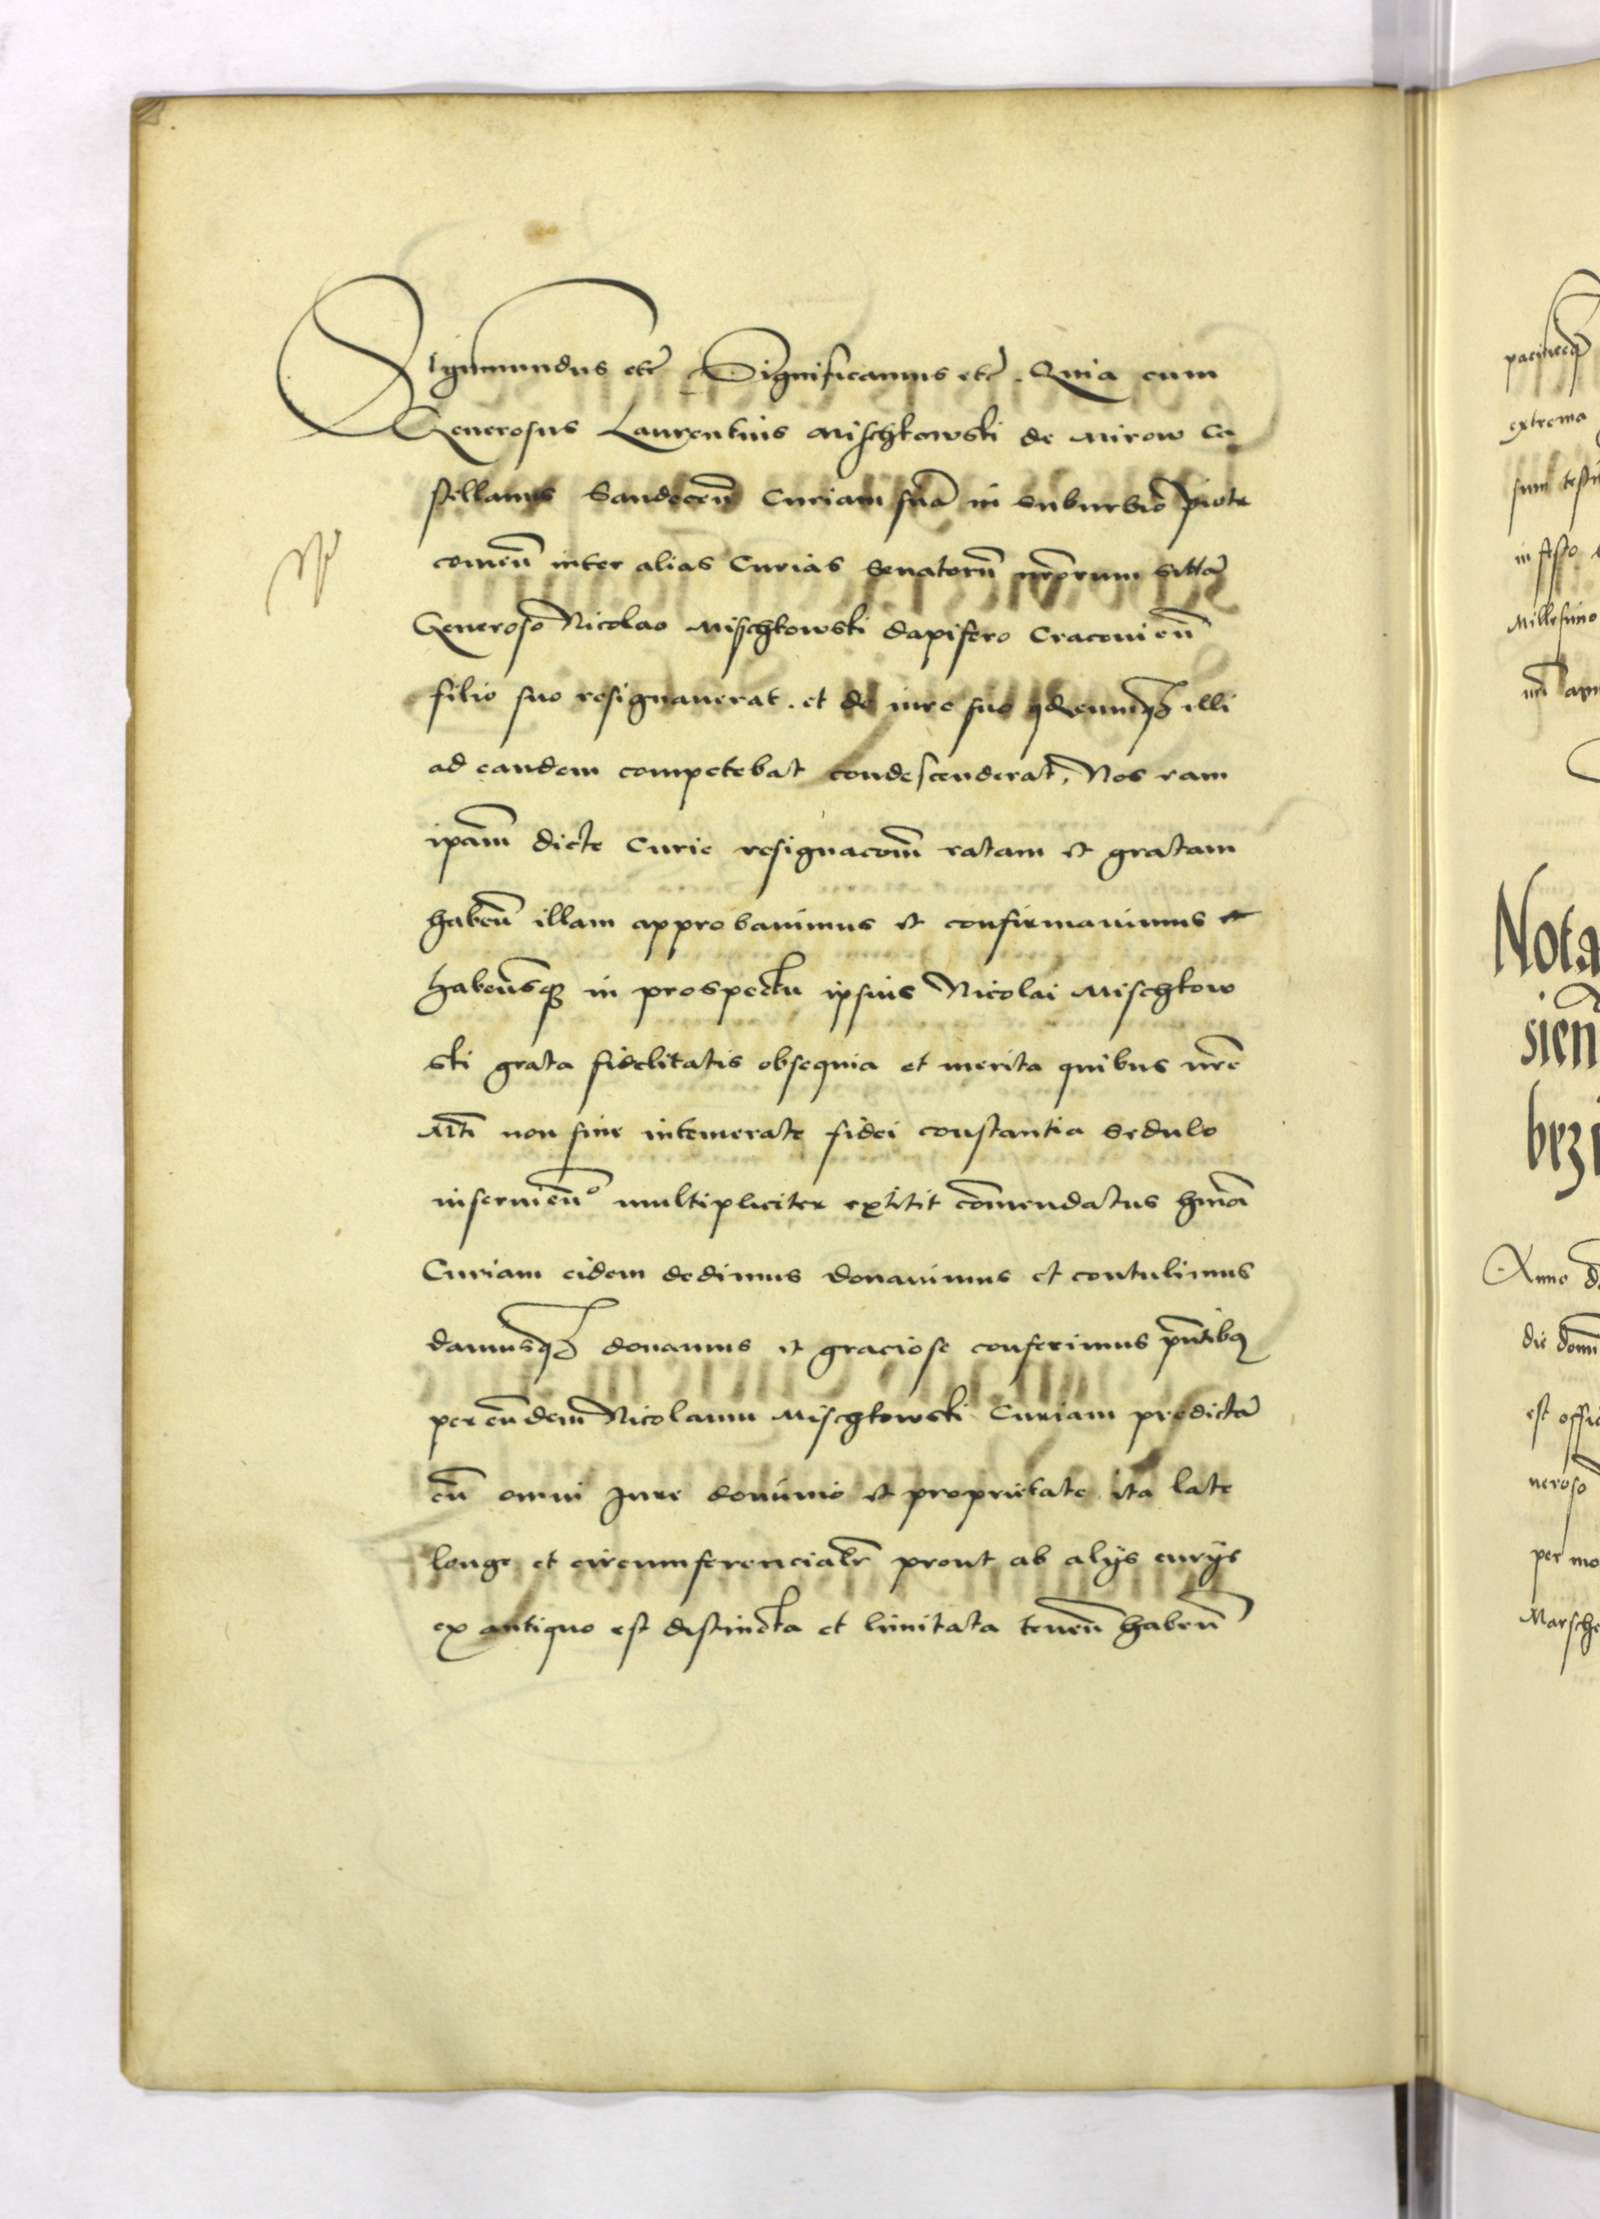 Sigismundus etc̃ Significamus etc̃. Quia cum
Generosus Laurentius Mischkowski de Mirow Ca
stellanus Sandecen̄ Curiam suā in suburbio Piotr
comen̄ inter alias Curias Senatorū nr̄orum sittā
Generoso Nicolao Mischkowski dapifero Cracouien̄
filio suo resignauerat. et de iure suo qdcumq3 illi
ad eandem competebat condescenderat, Nos eam
ip̄am dicte Curie resignacōm̄ ratam et gratam
haben̄ illam approbauimus et confirmauimus et
haben̄sq3 in prospectu ipsius Nicolai Mischkow
ski grata fidelitatis obsequia et merita quibus nr̄e
Mti non sine intemerate fidei constantia sedulo
inseruien̄o multipliciter extitit com̄endatus hm̄oi
Curiam eidem dedimus donauimus et contulimus
damusq3 donamus et graciose conferimus pn̄tibq
per eūdem Nicolaum Mischkowski Curiam predictā
cū omni Jure dominio et proprietate ita late
longe et circumferencialr̄ prout ab alijs curijs
ex antiquo est distincta et limitata tenen̄ haben̄
pacit
extrema
in festo
Millesimo
Nota
sien̄
brzi
Anno d
die dom̄
est offi
neroso
per mo
Marsch